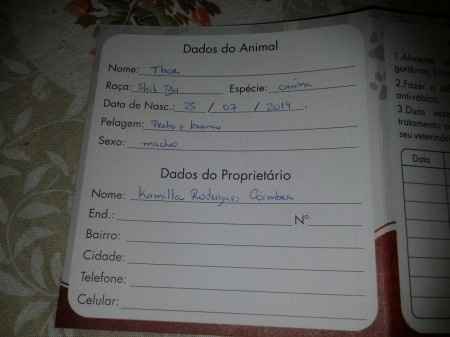 Dados do Animal
Nome: Thor
Raça: Shih Tzu Espécie: canina
Data de Nasc.: 25 / 07 / 2014
Pelagem: Preto e branco
Sexo: macho
Dados do Proprietário
Nome: Kamilla Rodrigues Coimbra
End.: Nº
Bairro:
Cidade:
Telefone:
Celular:
1.
2. Fazer
3.
tratamento
seu
Data